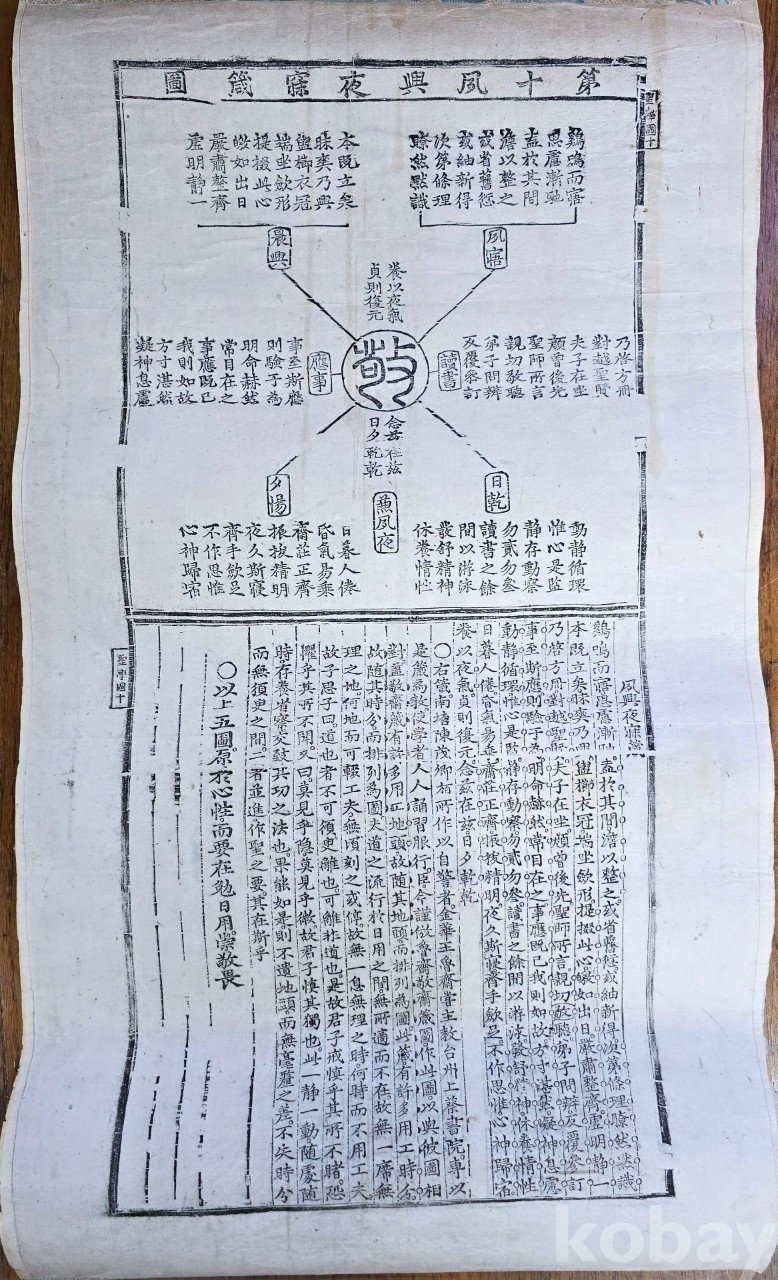 第十夙興夜寐箴圖
聖學圖十
鷄鳴而寤
思慮漸馳
盍於其間
澹以整之
或省舊愆
或紬新得
次第條理
瞭然默識
夙寤
本旣立矣
昧爽乃興
盥櫛衣冠
端坐斂形
提掇此心
皦如出日
嚴肅整齊
虛明靜一
晨興
養以夜氣
貞則復元
敬
乃啓方冊
對越聖賢
夫子在坐
顔曾後先
聖師所言
親切敬聽
弟子問辨
反覆參訂
讀書
應事
事至斯應
則驗于爲
明命赫然
常目在之
事應旣已
我則如故
方寸湛然
凝神息慮
念玆在玆
日夕乾乾
兼夙夜
日乾
動靜循環
惟心是監
靜存動察
勿貳勿參
讀書之餘
間以游泳
發舒精神
休養情性
夕惕
日暮人倦
昏氣易乘
齋莊正齊
振拔精明
夜久斯寢
齊手斂足
不作思惟
心神歸宿
夙興夜寐箴
鷄鳴而寤思慮漸馳盍於其間澹以整之或省舊愆或紬新得次第條理瞭然默識
本旣立矣昧爽乃興盥櫛衣冠端坐斂形提掇此心皦如出日嚴肅整齊虛明靜一
乃啓方冊對越聖賢夫子在坐顔曾後先聖師所言親切敬聽弟子問辨反覆參訂
事至斯應則驗于爲明命赫然常目在之事應旣已我則如故方寸湛然凝神息慮
動靜循環惟心是監靜存動察勿貳勿參讀書之餘間以游泳發舒精神休養情性
日暮人倦昏氣易乘齋莊正齊振拔精明夜久斯寢齊手斂足不作思惟心神歸宿
養以夜氣貞則復元念玆在玆日夕乾乾
○右箴南塘陳茂卿栢所作以自警者金華王魯齋嘗主敎台州上蔡書院專以
是箴爲敎使學者人人誦習服行臣今謹倣魯齋敬齋箴圖作此圖以與彼圖相
對蓋敬齋箴有許多用工地頭故隨其地頭而排列爲圖此箴有許多用工時分
故隨其時分而排列爲圖夫道之流行於日用之間無所適而不在故無一席無
理之地何地而可輟工夫無頃刻之或停故無一息無理之時何時而不用工夫
故子思子曰道也者不可須臾離也可離非道也是故君子戒愼乎其所不睹恐
懼乎其所不聞又曰莫見乎隱莫顯乎微故君子愼其獨也此一靜一動隨處隨
時存養省察交致其功之法也果能如是則不遺地頭而無毫釐之差不失時分
而無須臾之間二者並進作聖之要其在斯乎
○以上五圖原於心性而要在勉日用崇敬畏
聖學圖十
kobay